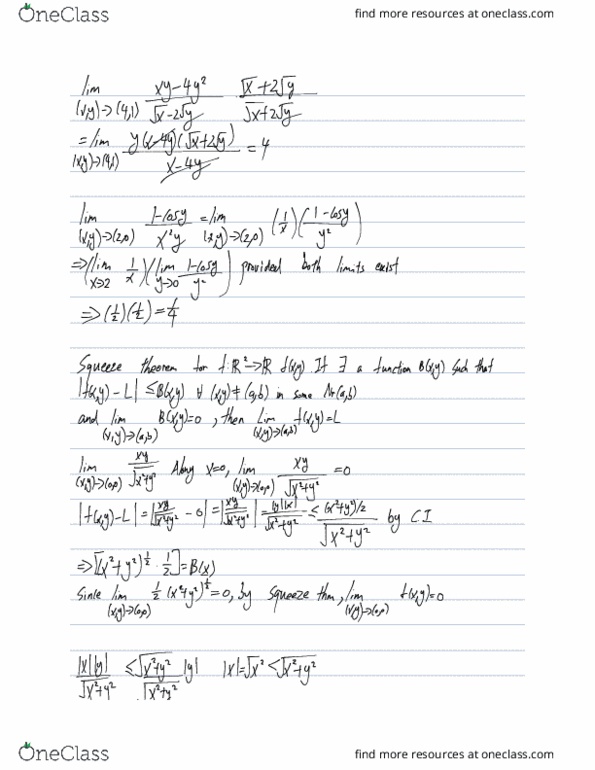 OneClass
find more resources at oneclass.com
lim (x,y)→(4,1) xy-4y² / √x-2√y · √x+2√y / √x+2√y
= lim (x,y)→(4,1) y(x-4y)(√x+2√y) / x-4y = 4
lim (x,y)→(2,0) 1-cosy / x²y = lim (x,y)→(2,0) (1/x)(1-cosy / y²)
⇒ (lim x→2 1/x)(lim y→0 1-cosy / y²) provided both limits exist
⇒ (1/2)(1/2) = 1/4
Squeeze theorem for f:ℝ²→ℝ f(x,y). If ∃ a function B(x,y) such that
|f(x,y)-L| ≤ B(x,y) ∀ (x,y)≠(a,b) in some Nr(a,b)
and lim (x,y)→(a,b) B(x,y)=0, then Lim (x,y)→(a,b) f(x,y)=L
lim (x,y)→(0,0) xy / √x²+y² Along x=0, lim (x,y)→(0,0) xy / √x²+y² = 0
|f(x,y)-L| = |xy / √x²+y² - 0| = |xy / √x²+y²| = |y||x| / √x²+y² ≤ (x²+y²)/2 / √x²+y² by C.I
⇒ [(x²+y²)^½ · ½] = B(x)
Since lim (x,y)→(0,0) ½(x²+y²)^½ = 0, by squeeze thm, lim (x,y)→(0,0) f(x,y)=0
|x||y| / √x²+y² ≤ √x²+y² / √x²+y² |y| |x|=√x² < √x²+y²
OneClass
find more resources at oneclass.com